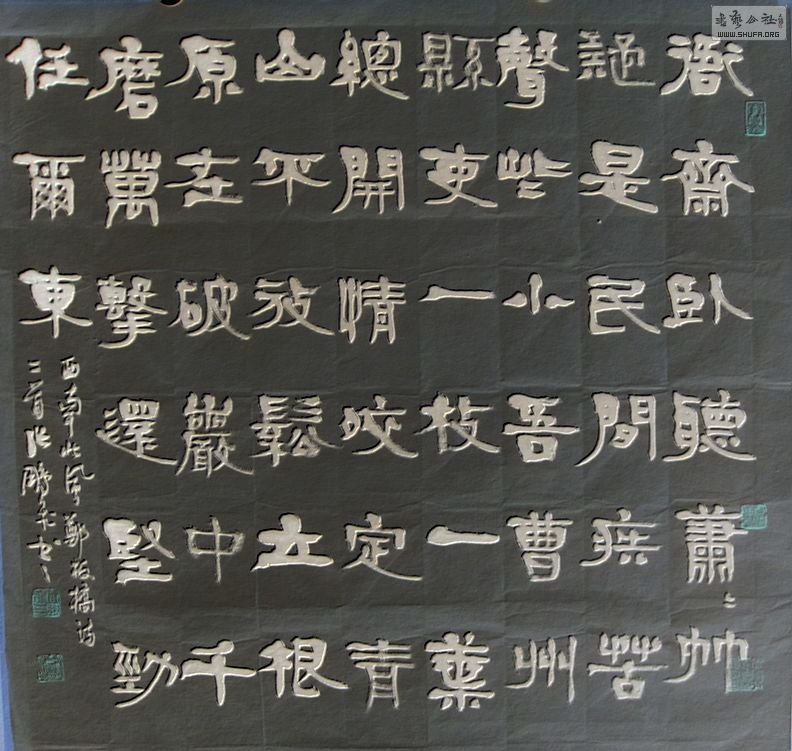 衙齋卧聽蕭〻竹
疑是民間疾苦
聲些小吾曹州
縣吏一枝一葉
總開情咬定青
山不放鬆立根
原在破巖中千
磨萬擊還堅勁
任爾東
西南北風鄭板橋詩
二首
書藝公社
WWW.SHUFA.ORG